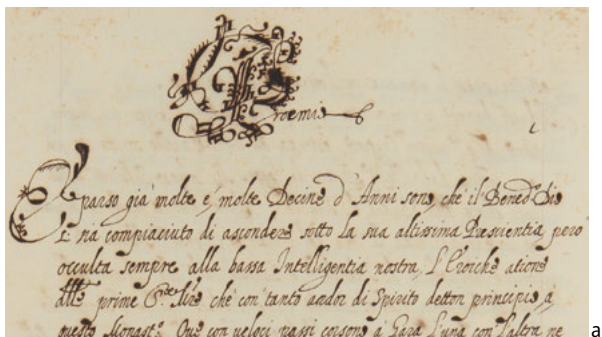 Proemio
È parso già molte e, molte Decine d'Anni sono, che il Bened.º Dio
si na compiaciuto di asconder sotto la sua altissima Prescientia, pero
occulta sempre alla bassa Intelligentia nostra, l'Eroiche atione
prime che con tanto ardor di Spirito detton principio, a,
questo Monast.º Que con veloci passi corsono a Gara l'una con l'altra ne
a